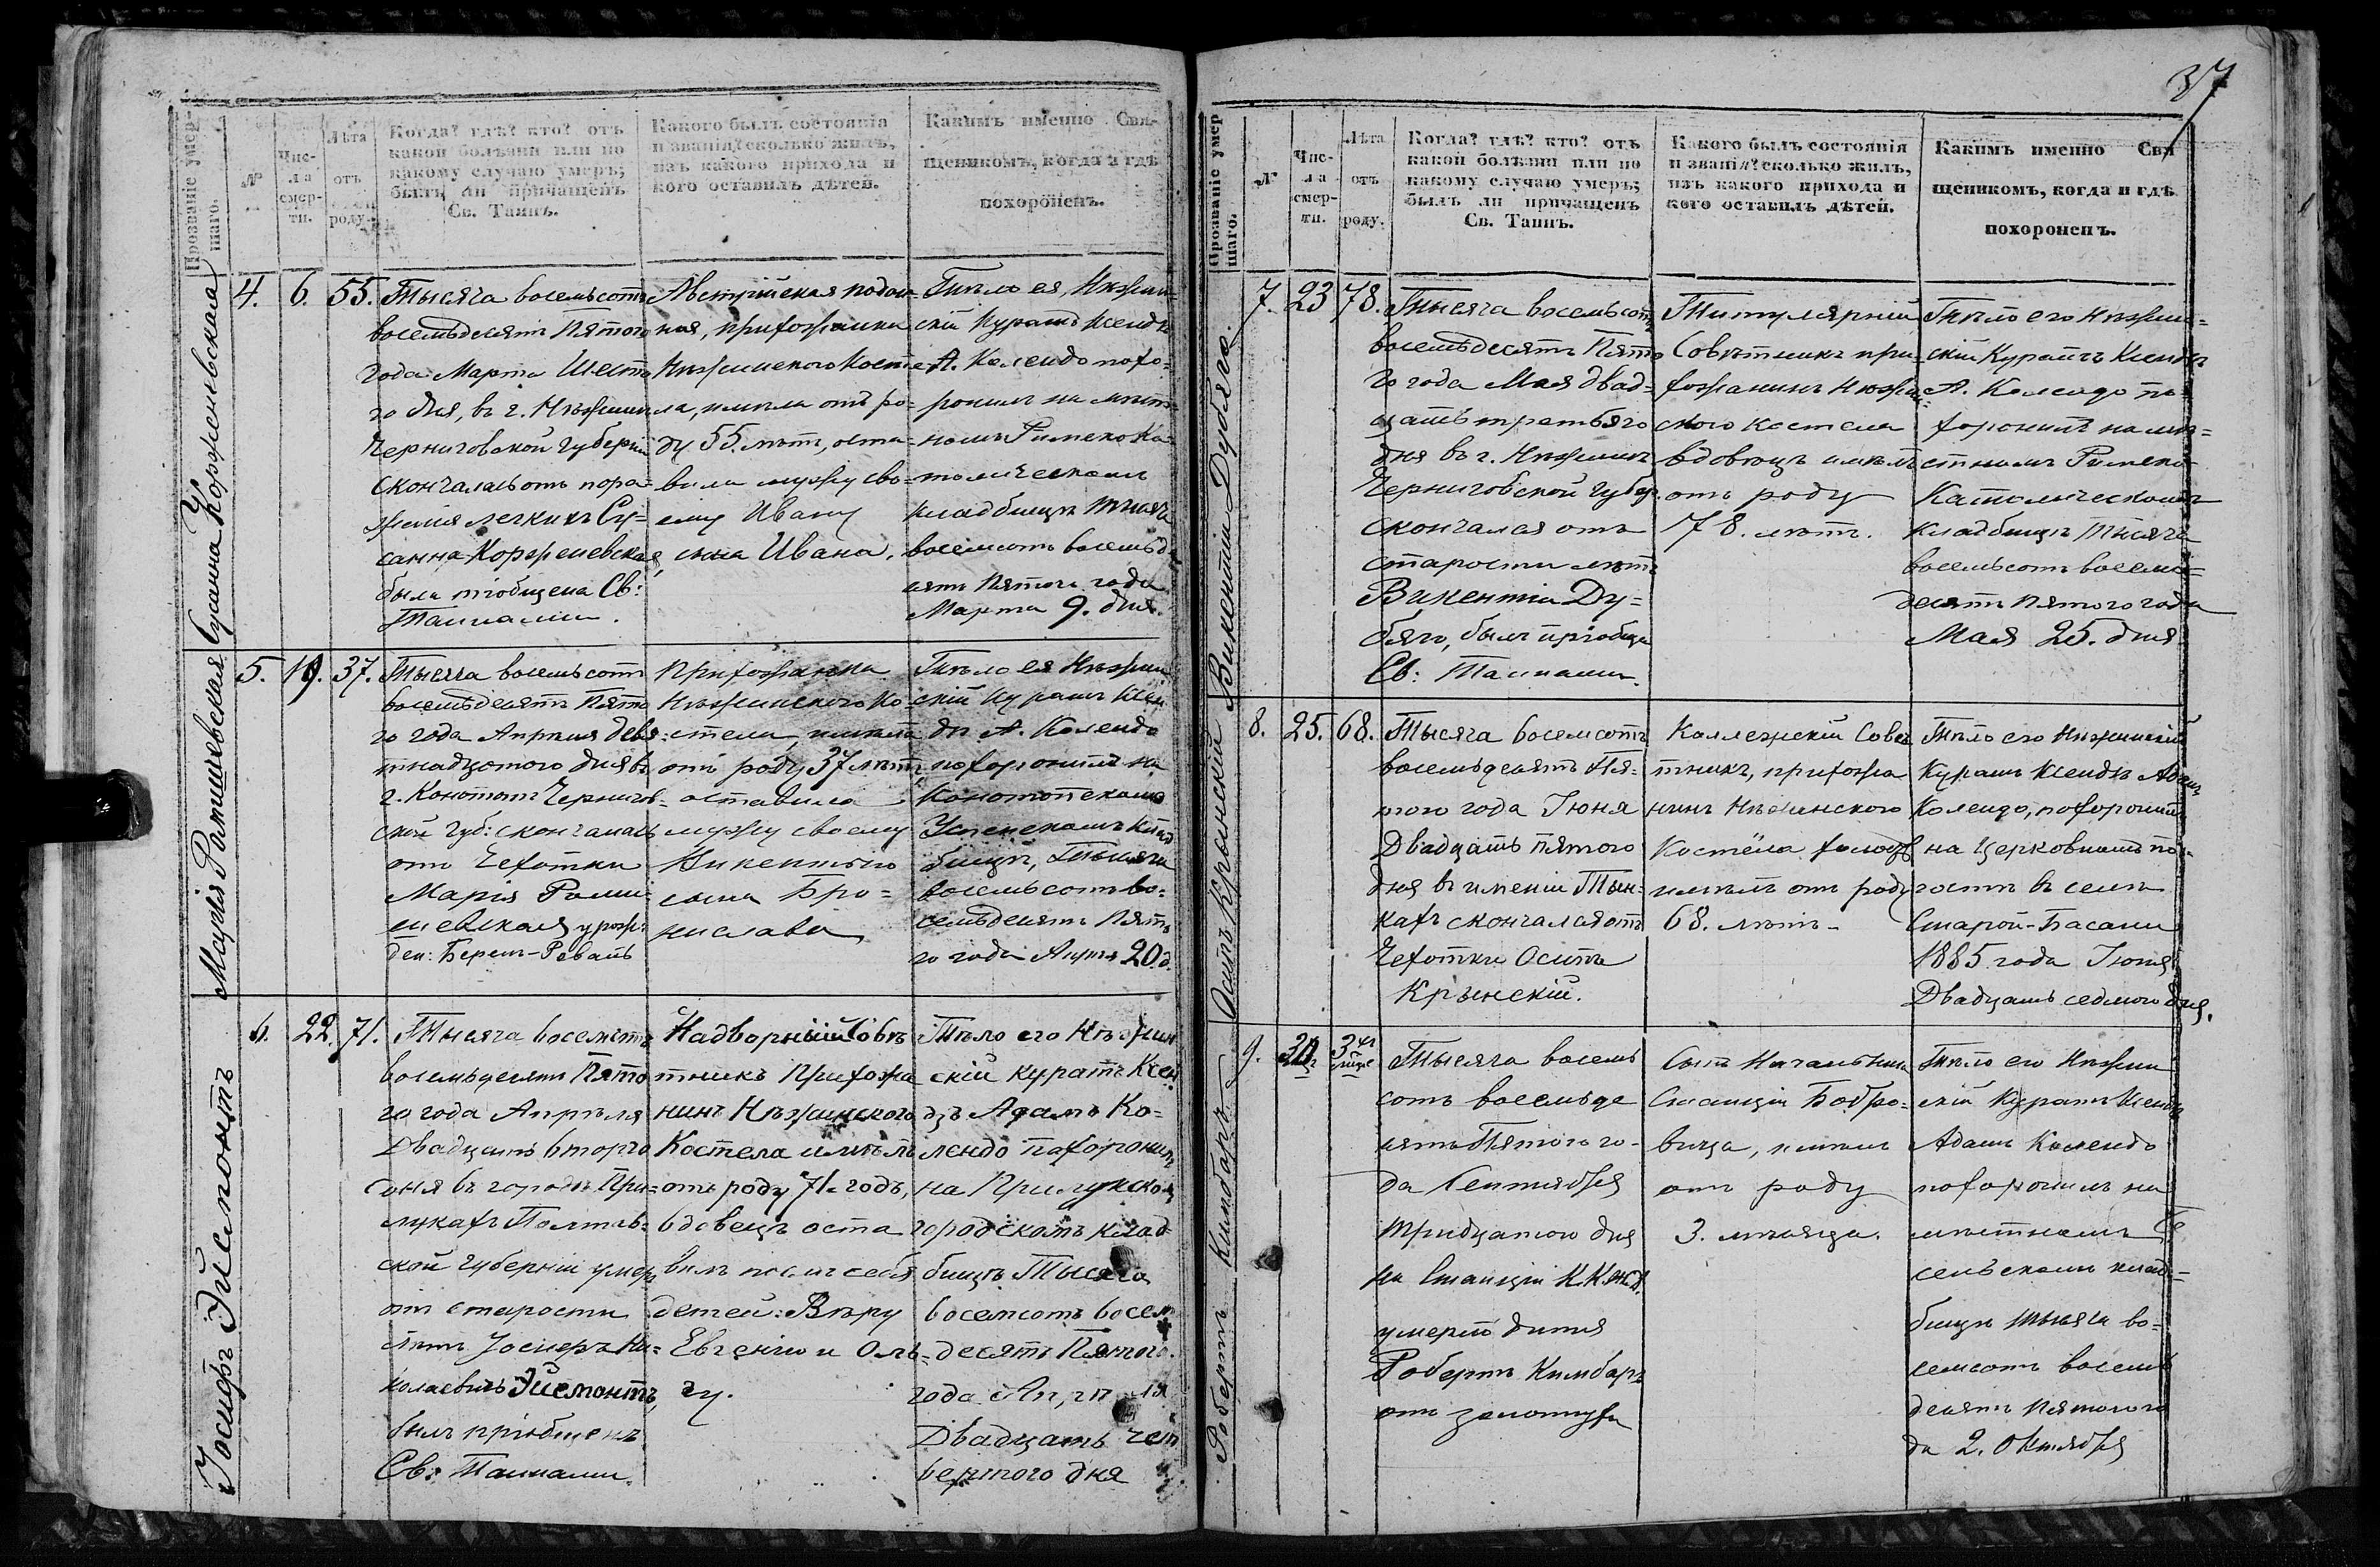 37
Прозваніе умер-
шаго.
№
Чис-
ла
смер-
ти.
Лѣта
отъ
роду.
Когда? гдѣ? кто? отъ
какой болѣзни или по
какому случаю умеръ;
былъ ли причащенъ
Св. Таинъ.
Какого былъ состоянія
и званія? сколько жилъ,
изъ какого прихода и
кого оставилъ дѣтей.
Какимъ именно Свя-
щеникомъ, когда и гдѣ
похороненъ.
Сусанна Корженевская
4.
6.
55.
Тысяча восемьсотъ
восемьдесятъ Пятого
года Марта Шесто
го дня, въ г. Нѣжинѣ
Черниговской губерніи
скончалась отъ пора-
женія легкихъ Су-
санна Корженевская
была пріобщена Св:
Тайнами.
Австрійская подан-
ная, прихожанка
Нѣжинского Косте
ла, имѣла отъ ро-
ду 55. лѣтъ, оста-
вила мужу сво-
ему Ивану
сына Ивана.
Тѣло ея, Нѣжин-
скій Куратъ Ксендзъ
А. Колендо похо-
ронилъ на мѣст-
номъ Римско Ка-
толическомъ
кладбищѣ тысяча
восемсотъ восемьде
сятъ Пятого года
Марта 9. дня.
Марія Ратишевская
5.
19.
37.
Тысяча восемьсотъ
восемьдесятъ Пято
го года Апрѣля девя-
тнадцатого дня въ
г. Конотопѣ Чернигов-
ской губ: скончалась
отъ Чехотки
Марія
урож-
ден:
Прихожанка
Нѣжинского Ко-
стела, имѣла
отъ роду 37 лѣтъ
оставила
мужу своему
Викентію
сына Бро-
нислава
Тѣло ея Нѣжин
скій Куратъ Ксен
дзъ А. Колендо
похоронилъ на
Конотопскомъ
Успенскомъ клад
бищѣ, Тысяча
восемьсотъ во-
семьдесятъ Пято
го года Апрѣля 20. д.
Іосифъ Эйсмонтъ
6.
22.
71.
Тысяча восемсотъ
восемьдесятъ Пято
го года Апрѣля
Двадцать второго
дня въ городѣ При-
лукахъ Полтав-
ской губерніи умеръ
отъ старости
лѣтъ Іосифъ Ни-
колаевичъ Эйсмонтъ,
былъ пріобщенъ
Св: Тайнами.
Надворный Совѣ
тникъ Прихожа
нинъ Нѣжинского
Костела имѣлъ
отъ роду 71. годъ,
вдовецъ оста
вилъ послѣ себя
детей: Вѣру
Евгенію и Оль-
гу.
Тѣло его Нѣжин
скій куратъ Ксен
дзъ Адамъ Ко-
лендо похоронилъ
на Прилукскомъ
городскомъ клад
бищѣ Тысяча
восемсотъ восем
десятъ Пятого
года Апрѣля
Двадцать чет
вертого дня
Прозваніе умер
шаго.
№
Чис-
ла
смер-
ти.
Лѣта
отъ
роду.
Когда? гдѣ? кто? отъ
какой болѣзни или по
какому случаю умеръ;
былъ ли причащенъ
Св. Таинъ.
Какого былъ состоянія
и званія? сколько жилъ,
изъ какого прихода и
кого оставилъ дѣтей.
Какимъ именно Свя
щеникомъ, когда и гдѣ
похороненъ.
Викентій Дубяго.
7.
23
78.
Тысяча восемьсотъ
восемьдесятъ Пято
го года Мая двад-
цать третьяго
дня въ г. Нѣжинѣ
Черниговской губер.
скончался отъ
старости лѣтъ
Викентій Ду-
бяго, былъ пріобще
Св: Тайнами.
Титулярный
Совѣтникъ при-
хожанинъ Нѣжин-
ского Костела
вдовецъ имѣлъ
отъ роду
78. лѣтъ.
Тѣло его Нѣжин-
скій Куратъ Ксендзъ
А. Колендо по-
хоронилъ на мѣ-
стномъ Римско
Католическомъ
кладбищѣ Тысяча
восемьсотъ восемь-
десятъ Пятого года
Мая 25. дня
Осипъ Крынскій
8.
25.
68.
Тысяча восемсотъ
восемьдесятъ Пя-
того года Іюня
Двадцать пятого
дня въ имѣніи Тын-
кахъ скончался отъ
Чехотки Осипъ
Крынскій.
Коллежскій Совѣ
тникъ, прихожа
нинъ Нѣжинского
Костёла холостъ
имѣлъ отъ роду
68. лѣтъ-
Тѣло его Нѣжинскій
Куратъ Ксендзъ Адамъ
Колендо, похоронилъ
на Церковномъ по-
гостѣ въ селѣ
Старой-Басани
1885 года Іюня
Двадцать седмого дня.
Робертъ Кимбаръ
9.
30
3
Тысяча восемь
сотъ восемьде
сятъ Пятого го-
да Сентября
тридцатого дня
на Станціи К.К.Ж.д.
умерло дитя
Робертъ Кимбаръ
отъ золотухи
Сынъ Начальника
Станціи Бобро-
вица, имѣлъ
отъ роду
3. мѣсяца.
Тѣло его Нѣжин
скій Куратъ Ксендзъ
Адамъ Колендо
похоронилъ на
мѣстномъ
сельскомъ клад-
бищѣ тысяча во-
семсотъ восемь
десятъ пятого го
да 2. Октября